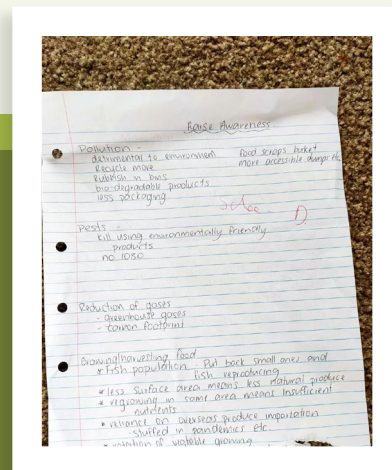 Raise Awareness
Pollution -
detrimental to environment
Recycle more
Rubbish in bins
bio-degradable products
less packaging
food scraps bucket
more accessible dumps etc
D.
Pests -
kill using environmentally friendly
products
no 1080
Reduction of gases
- greenhouse gases
- carbon footprint
Growing/harvesting food
* Fish population - Put back small ones and
fish reproducing
* less surface area means less natural produce
* regrowing in same area means insufficient
nutrients
* reliance on overseas produce importation
- stuffed in pandemics etc.
* rotation of vegtable growing